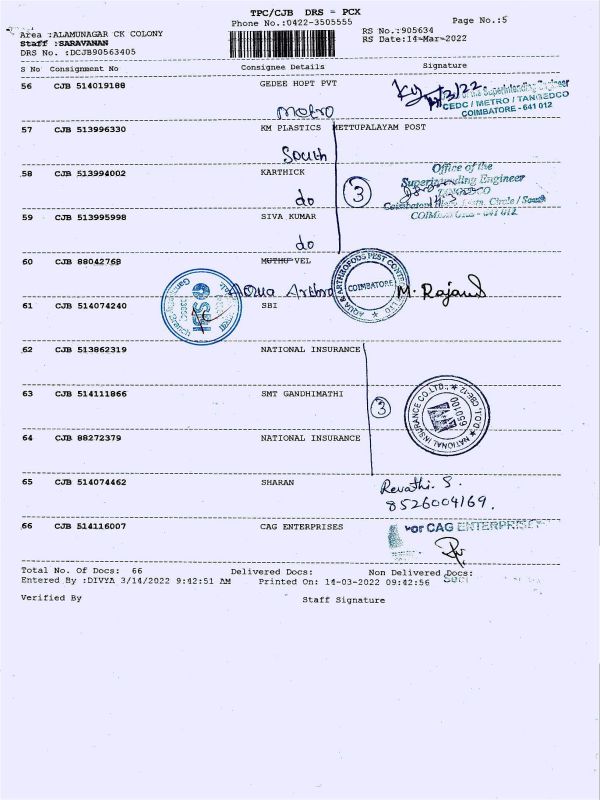 TPC/CJB DRS = PCX
Phone No.:0422-3505555
Page No.:5
Area :ALAMUNAGAR CK COLONY
Staff :SARAVANAN
DRS No. :DCJB90563405
RS No.:905634
RS Date:14-Mar-2022
S No Consignment No Consignee Details Signature
56 CJB 514019188 GEDEE HOPT PVT
Metro
Superintending Engineer
CEDC / METRO / TANGEDCO
COIMBATORE - 641 012
57 CJB 513996330 KM PLASTICS METTUPALAYAM POST
South
58 CJB 513994002 KARTHICK
do
3
Office of the
Superintending Engineer
TANGEDCO
Circle / South
59 CJB 513995998 SIVA KUMAR
do
60 CJB 88042768 MUTHU VEL
Aqua
AQUA & ARTHROPODS PEST CONTROL
COIMBATORE
M. Rajan
61 CJB 514074240 SBI
62 CJB 513862319 NATIONAL INSURANCE
63 CJB 514111866 SMT GANDHIMATHI
3
NATIONAL INSURANCE CO.LTD.,
64 CJB 88272379 NATIONAL INSURANCE
65 CJB 514074462 SHARAN
Revathi. S.
8526004169.
66 CJB 514116007 CAG ENTERPRISES
For CAG ENTERPRISES
Total No. Of Docs: 66 Delivered Docs: Non Delivered Docs:
Entered By :DIVYA 3/14/2022 9:42:51 AM Printed On: 14-03-2022 09:42:56
Verified By Staff Signature